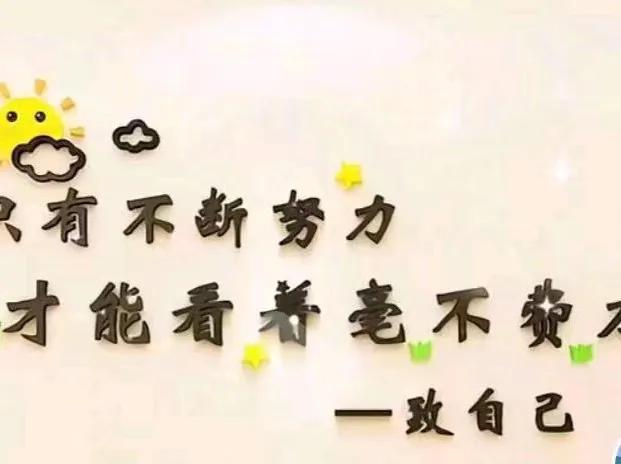 只有不断努力
才能看着毫不费
—致自己